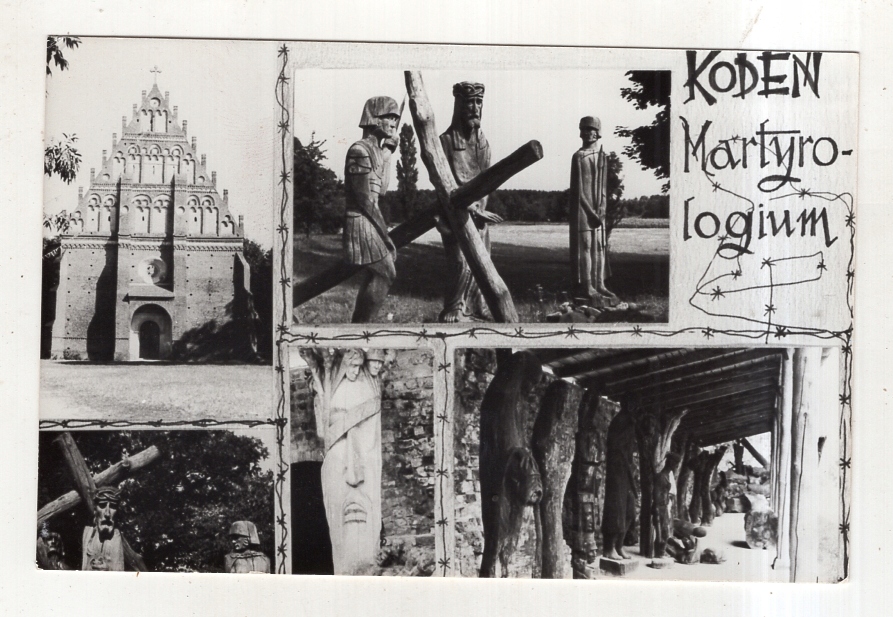 KODEŃ
Martyro-
logium